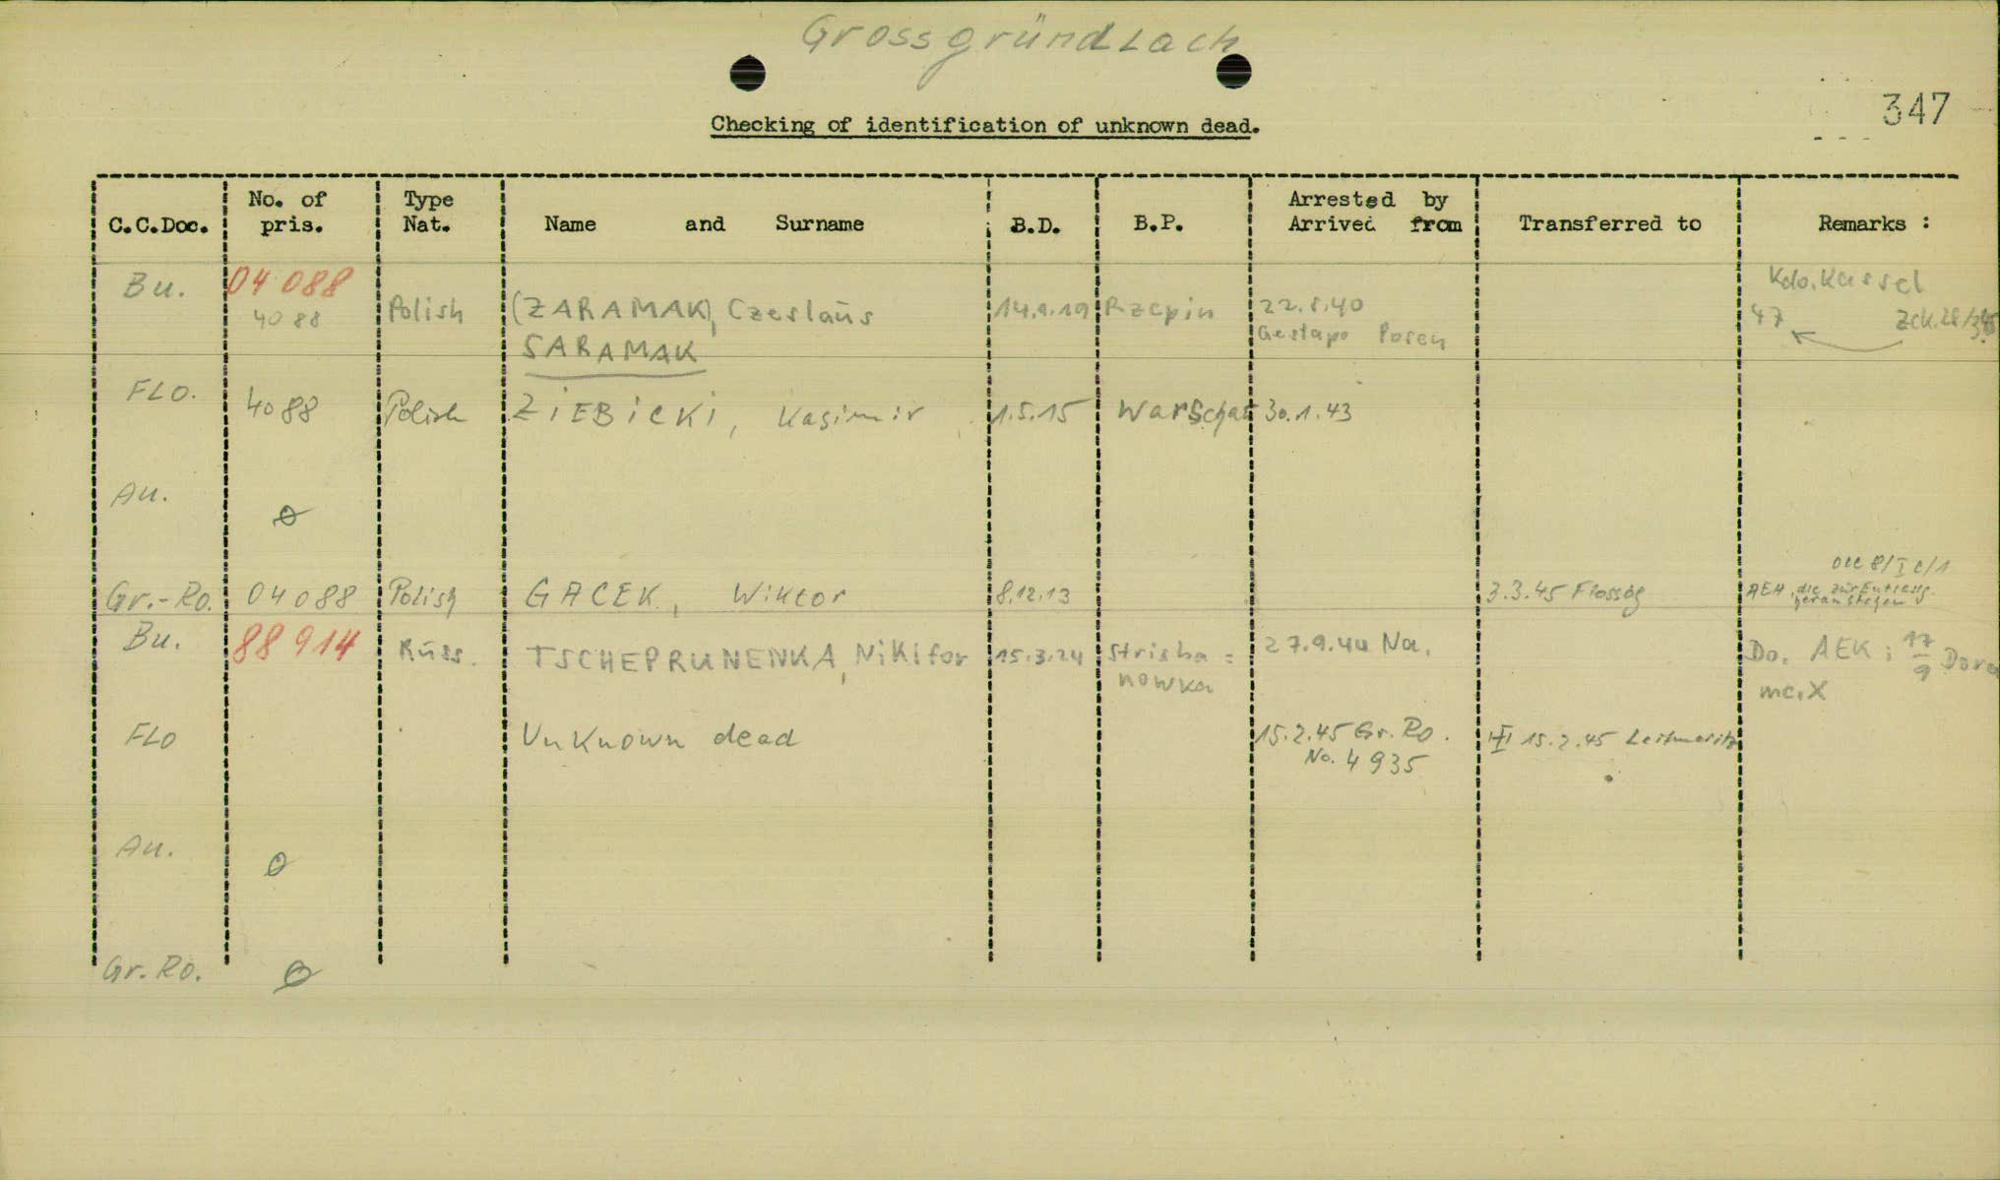 Grossgründlach
347
Checking of identification of unknown dead.
C.C.Doc. No. of pris. Type Nat. Name and Surname B.D. B.P. Arrested by Arrived from Transferred to Remarks :
Bu. 04088 Kdo. Kassel
4088 Polish (ZARAMAK), Czeslaus 14.9.19 Rzepin 22.8.40 47 Zck.
SARAMAK Gestapo Posen
FLO. 4088 Polish ZiEBiCKi, Kasimir 1.5.15 Warschau 30.1.43
Au. ø
8/I c/1
Gr.-Ro. 04088 Polish GACEK, Wiktor 8.12.13 3.3.45 Flossbg AEH, die zur
Bu. 88914 Russ. TSCHEPRUNENKA, Nikifor 15.3.24 Strisha= 27.9.44 Na. Do. AEK: 17/9 Dora
nowka mc.X
FLO Unknown dead 15.2.45 Gr. Ro. 15.2.45 Leitmeritz
No. 4935
Au. ø
Gr. Ro. ø